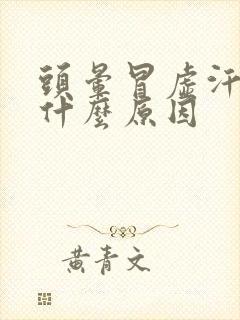 頭暈冒虛汗
什麼原因
黃青文